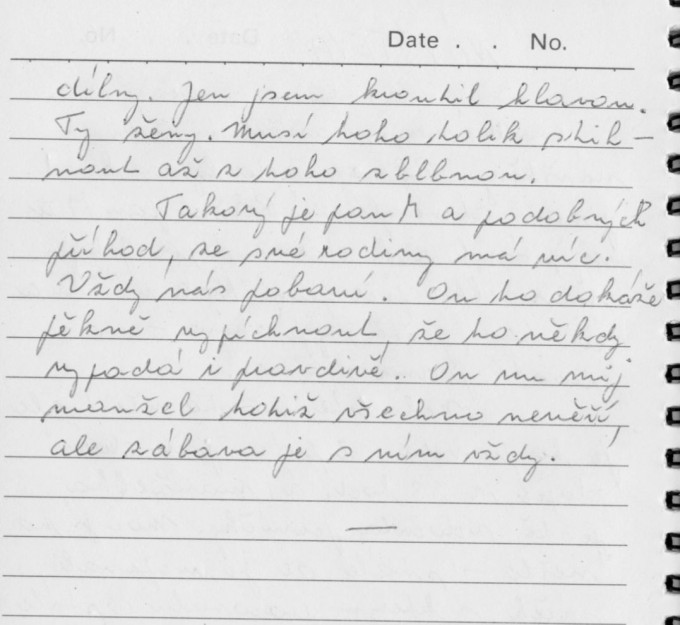 Date . . No.
dílny. Jen jsem kroutil hlavou.
Ty ženy. Musí toho tolik stih-
nout až z toho zblbnou.
Takový je pan M a podobných
příhod, ze své rodiny má víc.
Vždy nás pobaví. On to dokáže
pěkně vypíchnout, že to někdy
vypadá i pravdivě. On mu můj
manžel totiž všechno nevěří,
ale zábava je s ním vždy.